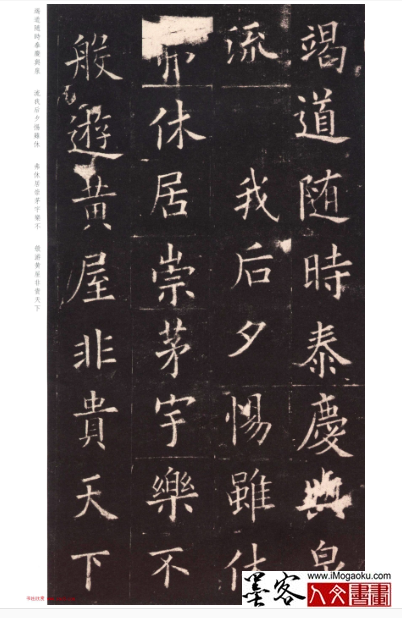 竭道随時泰慶與泉
流 我后夕惕雖休
弗休居崇茅宇樂不
般遊黄屋非貴天下
竭道随時泰慶與泉 流我后夕惕雖休 弗休居崇茅宇樂不 般遊黄屋非貴天下
墨客
www.iMogaoku.com
人文書畫